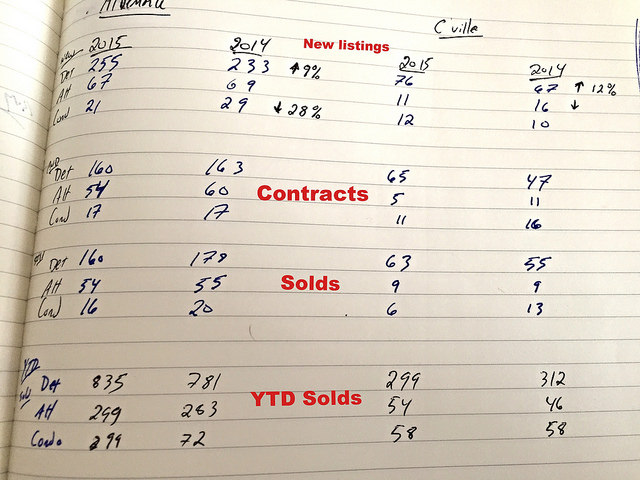 Albemarle C'ville
New 2015 2014 New listings 2015 2014
Det 255 233 ↑9% 76 67 ↑ 12%
AH 67 69 11 16 ↓
Cond 21 29 ↓ 28% 12 10
Det 160 163 65 47
AH 54 60 Contracts 5 11
Cond 17 17 11 16
Det 160 178 63 55
AH 54 55 Solds 9 9
Cond 16 20 6 13
YTD
Det 835 781 299 312
Sold AH 299 263 YTD Solds 54 46
Condo 99 72 58 58